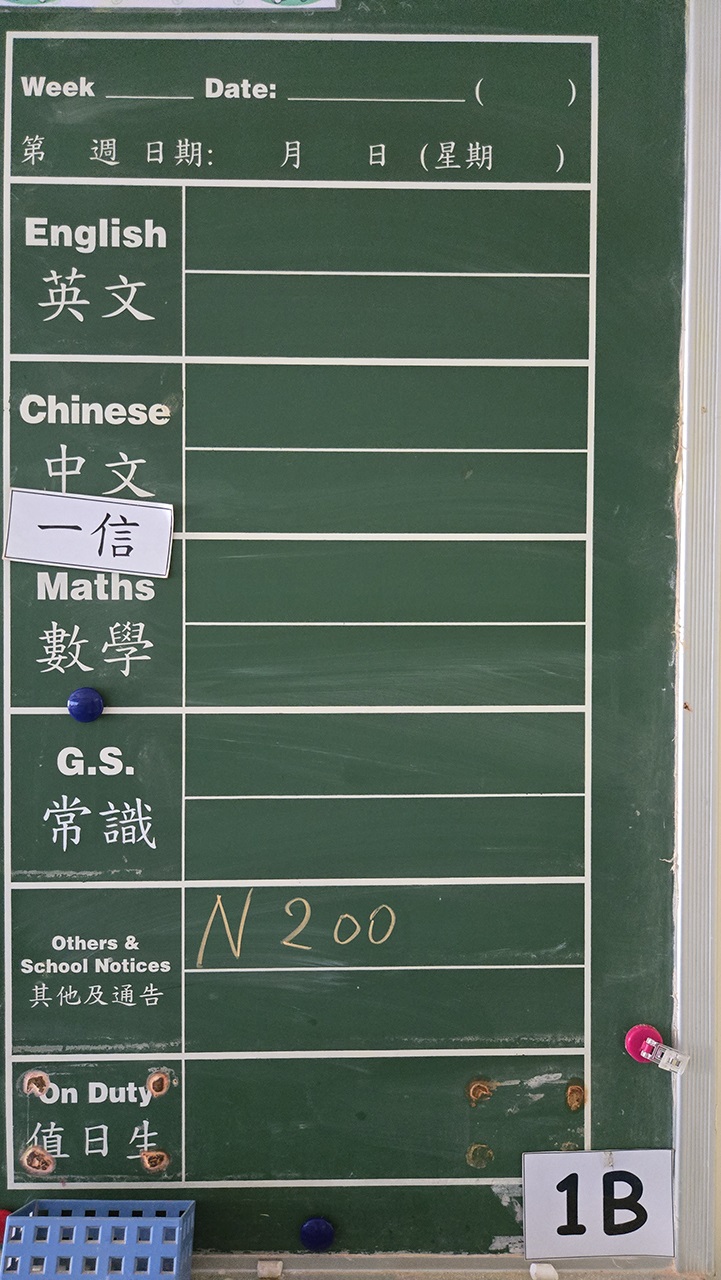 Week ______ Date: ____________ (      )
第 週 日期: 月 日 (星期 )
English
英文
Chinese
中文
一信
Maths
數學
G.S.
常識
N 200
Others &
School Notices
其他及通告
On Duty
值日生
1B